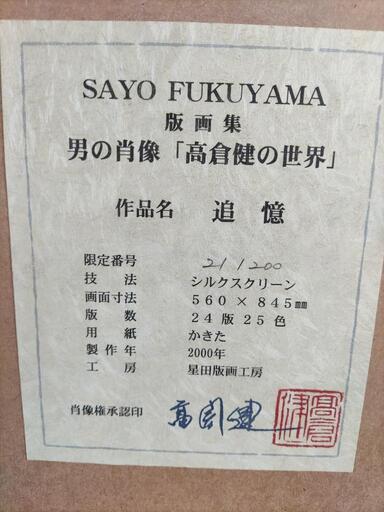 SAYO FUKUYAMA
版画集
男の肖像「高倉健の世界」
作品名 追憶
限定番号 21/200
技法 シルクスクリーン
画面寸法 560×845㎜
版数 24版25色
用紙 かきた
製作年 2000年
工房 星田版画工房
肖像権承認印